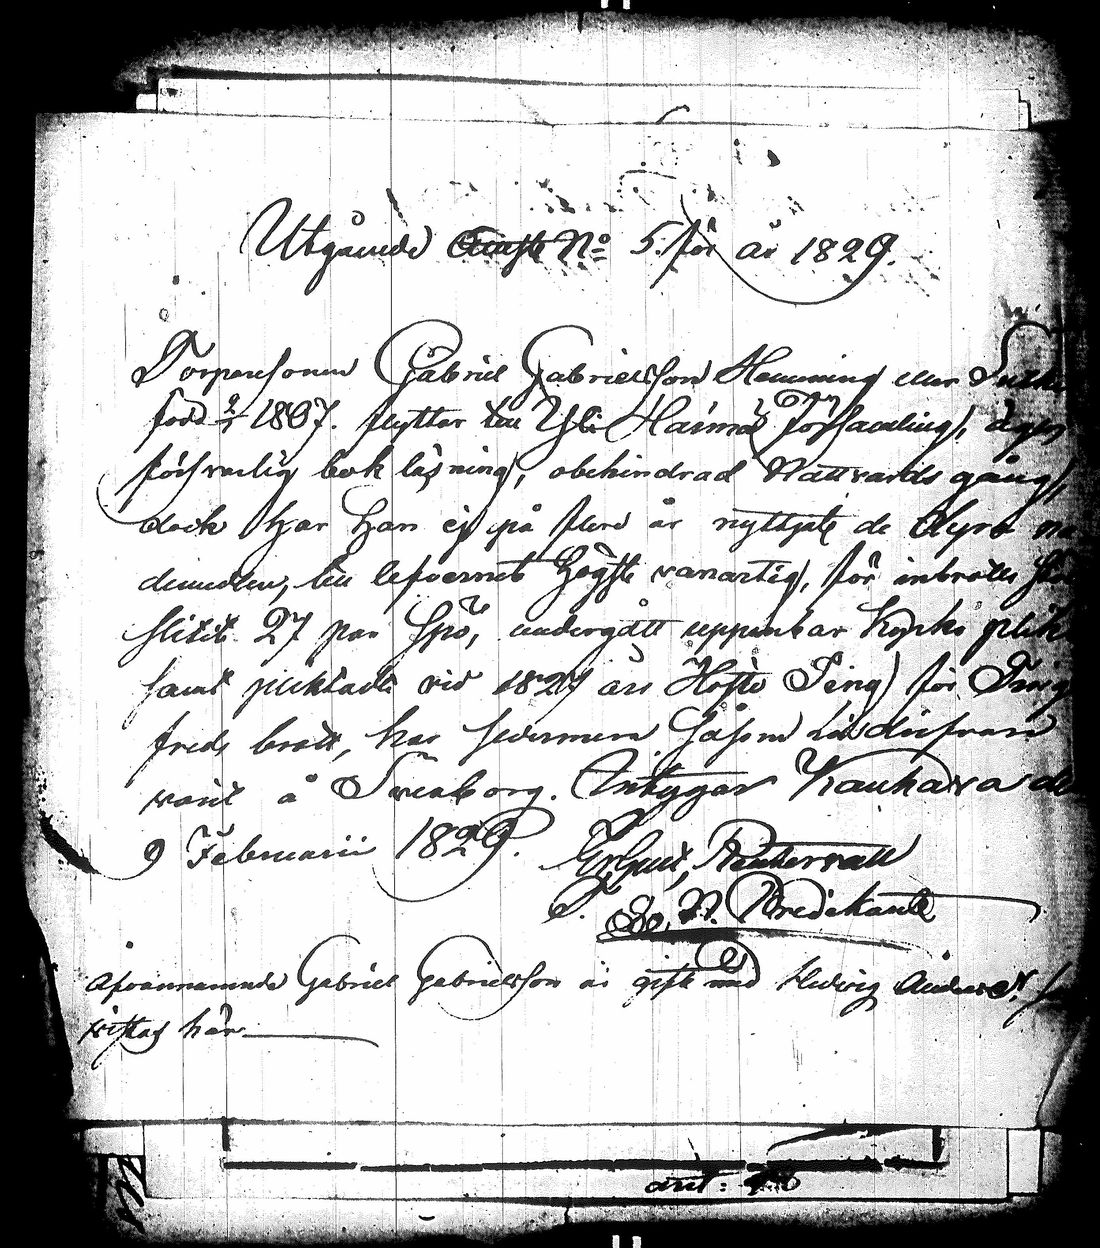 Utgående N:o 5. för år 1829.
Torparesonen Gabriel Gabrielsson Hemming eller
född 2/1 1807. flyttar till Yli Härmä Församling, äger
försvarlig bok läsning, obehindrad Nattvards gång,
dock har han ej på flere år nyttjat de dyra nå
demedlen, till lefvernet högst vanartig, för inbrotts
slitit 27 par Spö, undergått uppenbar Kyrko plikt
samt pliktade vid 1827 års Höste Ting för
freds brott, har sedermera såsom
varit å Sveaborg. Intygar Kauhava d
9 Februarii 1829.
Bredikant
Afvannämnde Gabriel Gabrielsson är gift med Hedvig Anders
vistas här